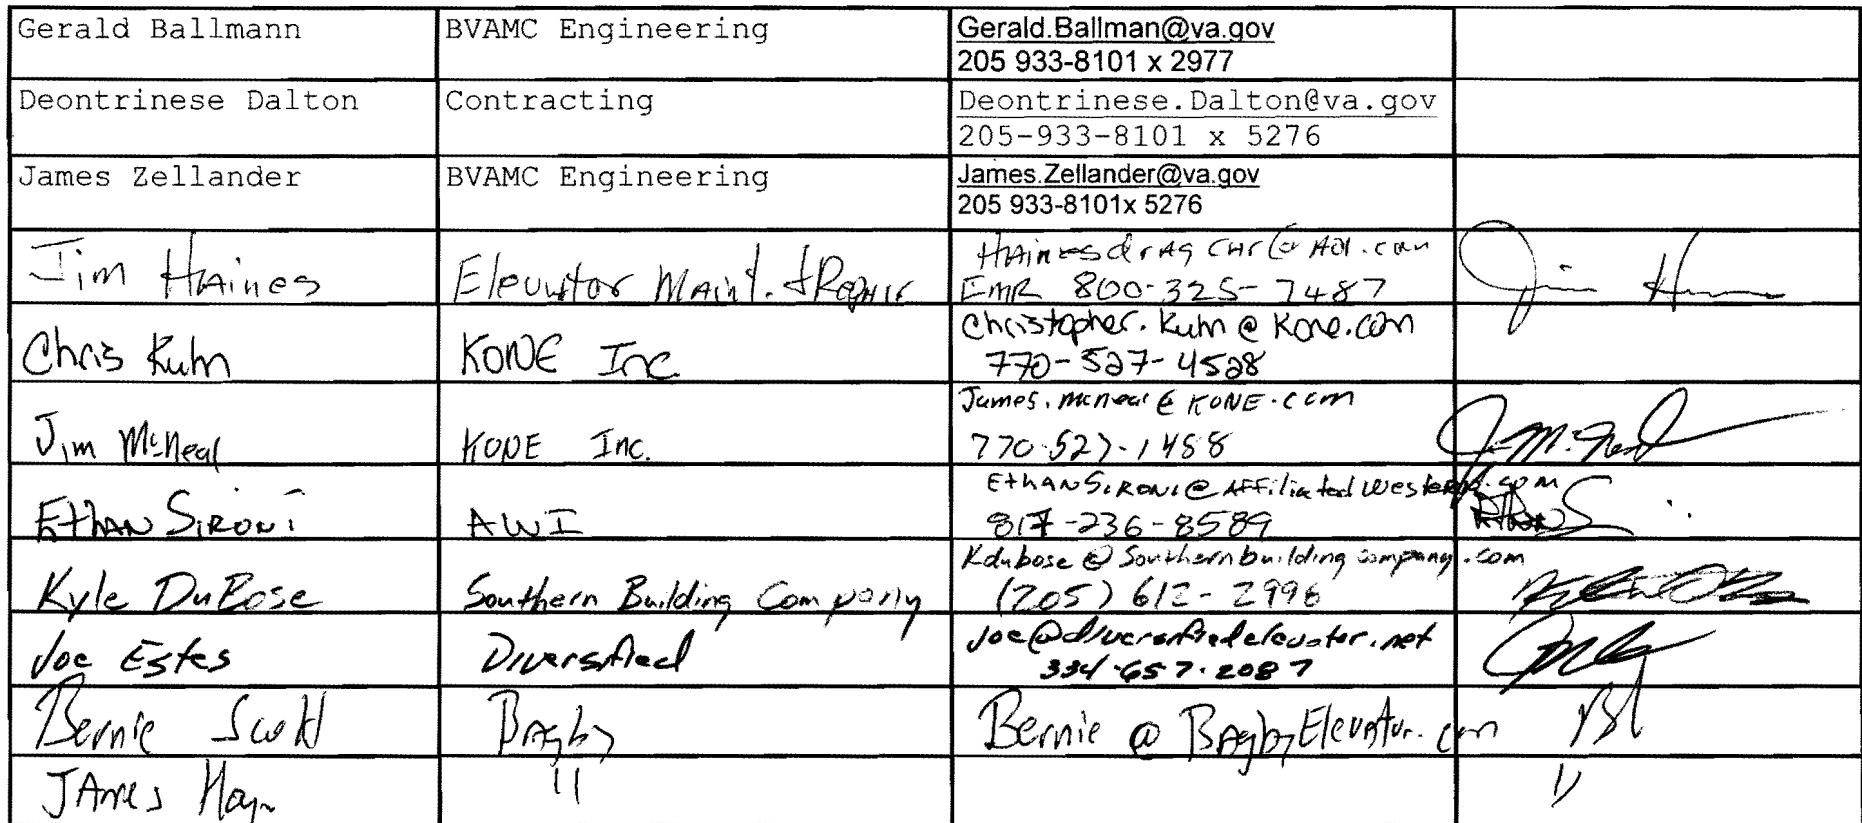 Gerald Ballmann BVAMC Engineering Gerald.Ballman@va.gov
205 933-8101 x 2977
Deontrinese Dalton Contracting Deontrinese.Dalton@va.gov
205-933-8101 x 5276
James Zellander BVAMC Engineering James.Zellander@va.gov
205 933-8101x 5276
Jim Haines Elevator Maint. & Repair Hainesdragcar@Aol.com
EMR 800-325-7487
Chris Kuhn KONE Inc Christopher.Kuhn@Kone.com
770-527-4528
Jim McNeal KONE Inc. James.mcneal@KONE.com
770-527-1488
Ethan Sironi AWI EthanSironi@AffiliatedWestern.com
817-236-8589
Kyle DuBose Southern Building Company Kdubose@Southernbuildingcompany.com
(205) 612-2996
Joe Estes Diversified joe@diversifiedelevator.net
334-657-2087
Bernie Scott Bagby Bernie@BagbyElevator.com
James "